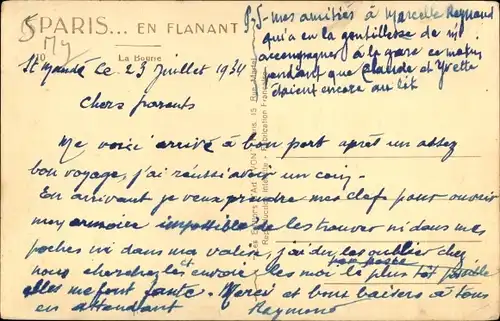 PARIS... EN FLANANT
10
La Bourse
P.S- mes amitiés à Marcelle Reynaud
qu'a en la gentillesse de m'
accompagner à la gare ce matin
pendant que Claude et Yvette
étaient encore au lit
St Mandé le 23 juillet 1934
Chers parents
Me voici arrivé à bon port après un assez
bon voyage, j'ai réussi avoir un coin-
En arrivant je veux prendre mes clefs pour ouvrir
mon armoire impossible de les trouver ni dans mes
poches ni dans ma valise, j'ai du les oublier chez
nous cherchez les et envoie les moi le plus tôt possible
par poste
elles me font faute - Merci et bons baisers à tous
en attendant
Raymond
Rue Martel
Fabrication Française